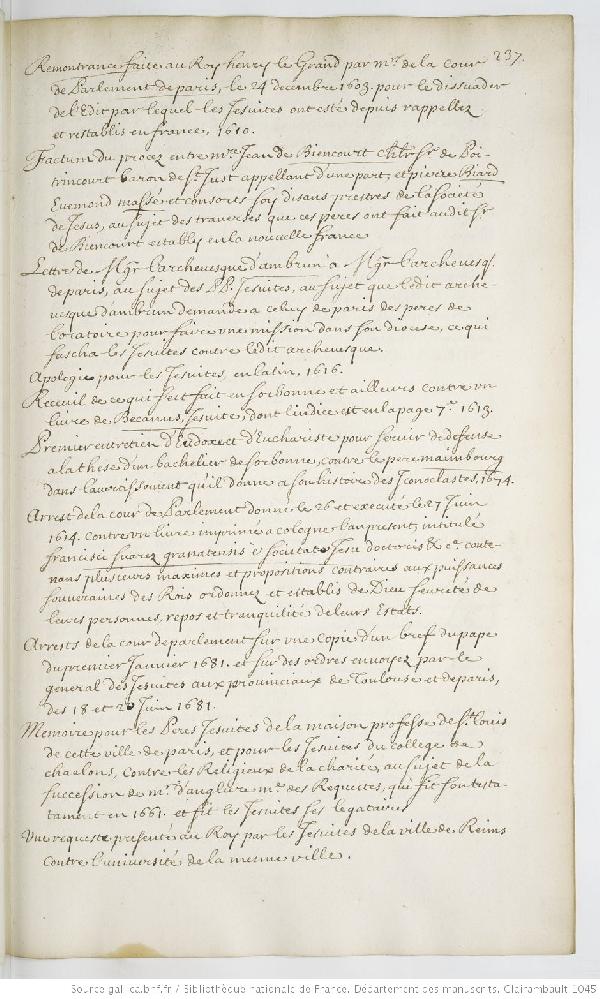 237.
Remontrance faite au Roy henry le Grand par mrs. de la cour
de Parlement de paris, le 24 decembre 1603. pour le dissuader
de l'Edit par lequel les Jesuites ont esté depuis rappellez
et restablis en france, 1610.
Factum du procez entre mre Jean de Biencourt chlr. sr. de Poi-
trincourt baron de st. Just appellant d'une part, et pierre Biard
Euemond massé et consorts soy disans prestres de la Societé
de Jesus, au sujet des trauerses que ces peres ont fait audit sr.
de Biencourt estably en la nouuelle france
Lettre de Mgr. l'archeuesque d'ambrun a Mgr. l'archeuesq.
de paris, au sujet des PP. Jesuites, au sujet que ledit arche-
uesque d'ambrum demande a celuy de paris des peres de
l'oratoire pour faire une mission dans son diocese, ce qui
fascha les Jesuites contre ledit archeuesque.
Apologie pour les Jesuites, en latin, 1616.
Receuil de ce qui s'est fait en sorbonne et ailleurs contre un
liure de Becanus, Jesuite, dont l'indice est en la page 7e. 1613.
Premier entretien d'Eudoxe et d'Euchariste pour seruir de defense
a la these d'un bachelier de sorbonne, contre le pere maimbourg
dans l'auertissement qu'il donne a son histoire des Iconoclastes, 1674.
Arrest de la cour de Parlement donné le 26 et executé le 27 Juin
1614. contre un liure imprimé a cologne l'an present, intitulé
francisci suarez granatensis è societate Jesu doctoris &c. conte-
nans plusieurs maximes et propositions contraires aux puissances
souueraines des Rois ordonnez et establis de Dieu seureté de
leurs personnes, repos et tranquilité de leurs Estats.
Arrests de la cour de parlement sur une copie d'un bref du pape
du premier Januier 1681. et sur des ordres enuoyez par le
general des Jesuites aux prouinciaux de Toulouse et de paris,
des 18 et Juin 1681.
Memoire pour les Peres Jesuites de la maison professe de st. louis
de cette ville de paris, et pour les Jesuites du college de
chaalons, contre les Religieux de la charité, au sujet de la
succession de mr. d'anglure me. des Requestes, qui fit son testa-
tament en 1661. et fit les Jesuites ses legataires
Une requeste presenté au Roy par les Jesuites de la ville de Reims
contre l'uniuersité de la mesme ville.
Source gallica.bnf.fr / Bibliothèque nationale de France. Département des manuscrits. Clairambault 1045